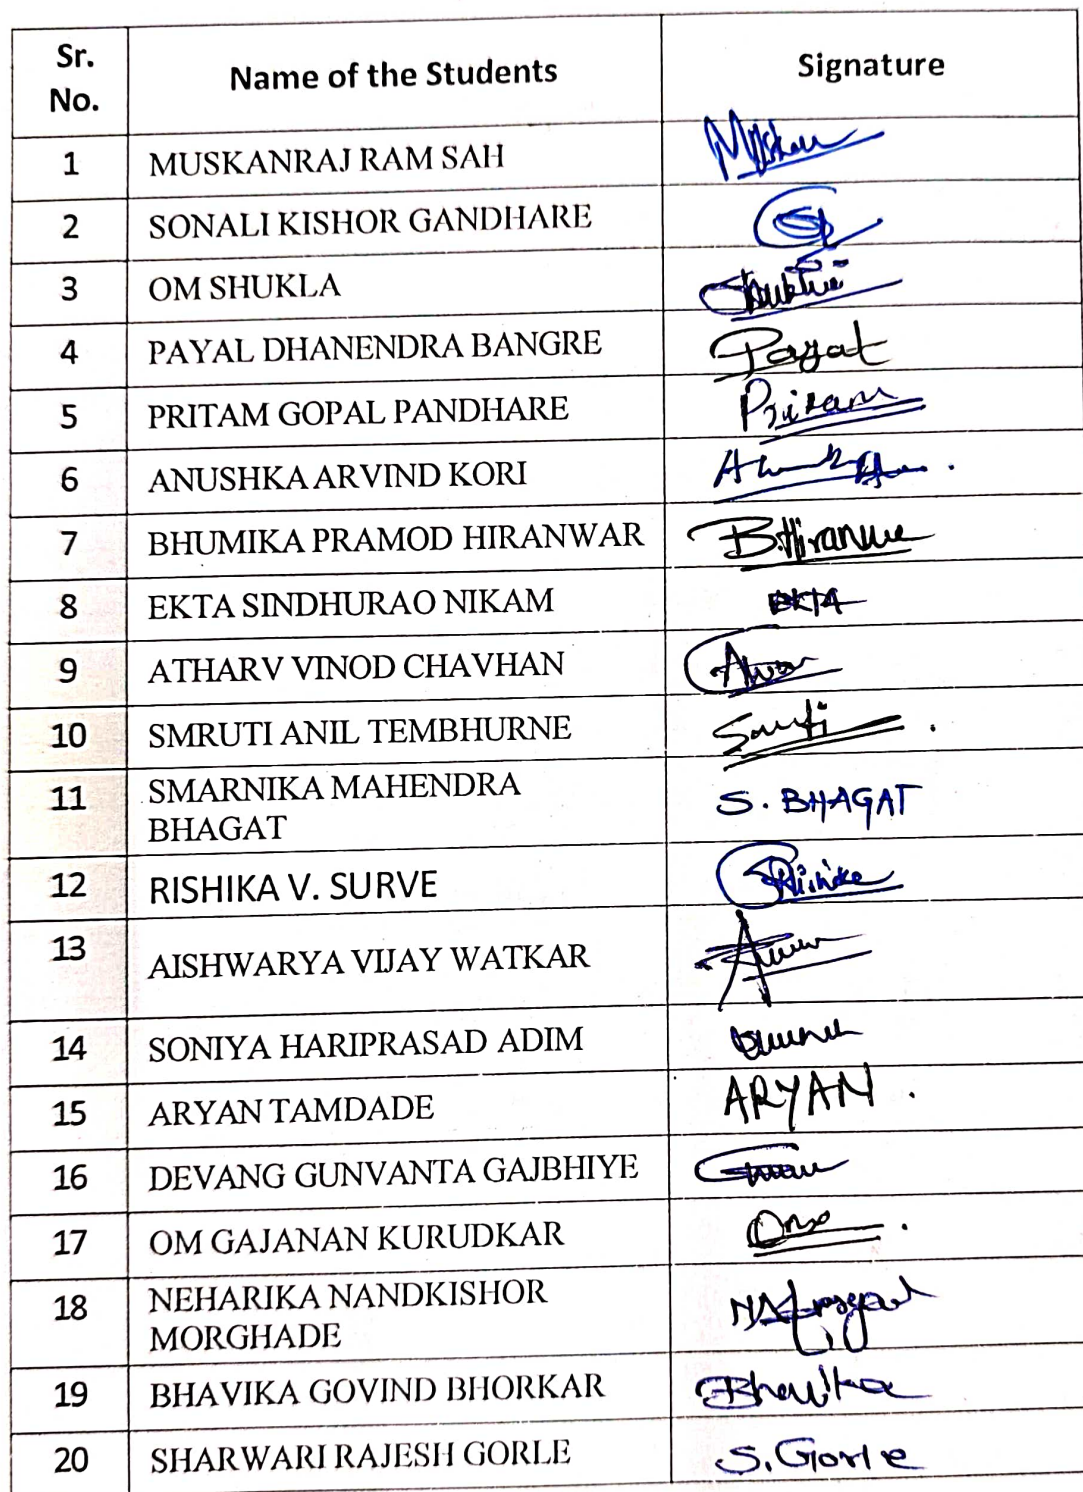 Sr. No. Name of the Students Signature
1 MUSKANRAJ RAM SAH Muskan
2 SONALI KISHOR GANDHARE
3 OM SHUKLA Shukla
4 PAYAL DHANENDRA BANGRE Payal
5 PRITAM GOPAL PANDHARE Pritam
6 ANUSHKA ARVIND KORI
7 BHUMIKA PRAMOD HIRANWAR
8 EKTA SINDHURAO NIKAM EKTA
9 ATHARV VINOD CHAVHAN
10 SMRUTI ANIL TEMBHURNE
11 SMARNIKA MAHENDRA
BHAGAT S. BHAGAT
12 RISHIKA V. SURVE
13 AISHWARYA VIJAY WATKAR
14 SONIYA HARIPRASAD ADIM
15 ARYAN TAMDADE ARYAN.
16 DEVANG GUNVANTA GAJBHIYE
17 OM GAJANAN KURUDKAR
18 NEHARIKA NANDKISHOR
MORGHADE
19 BHAVIKA GOVIND BHORKAR Bhavika
20 SHARWARI RAJESH GORLE S. Gorle